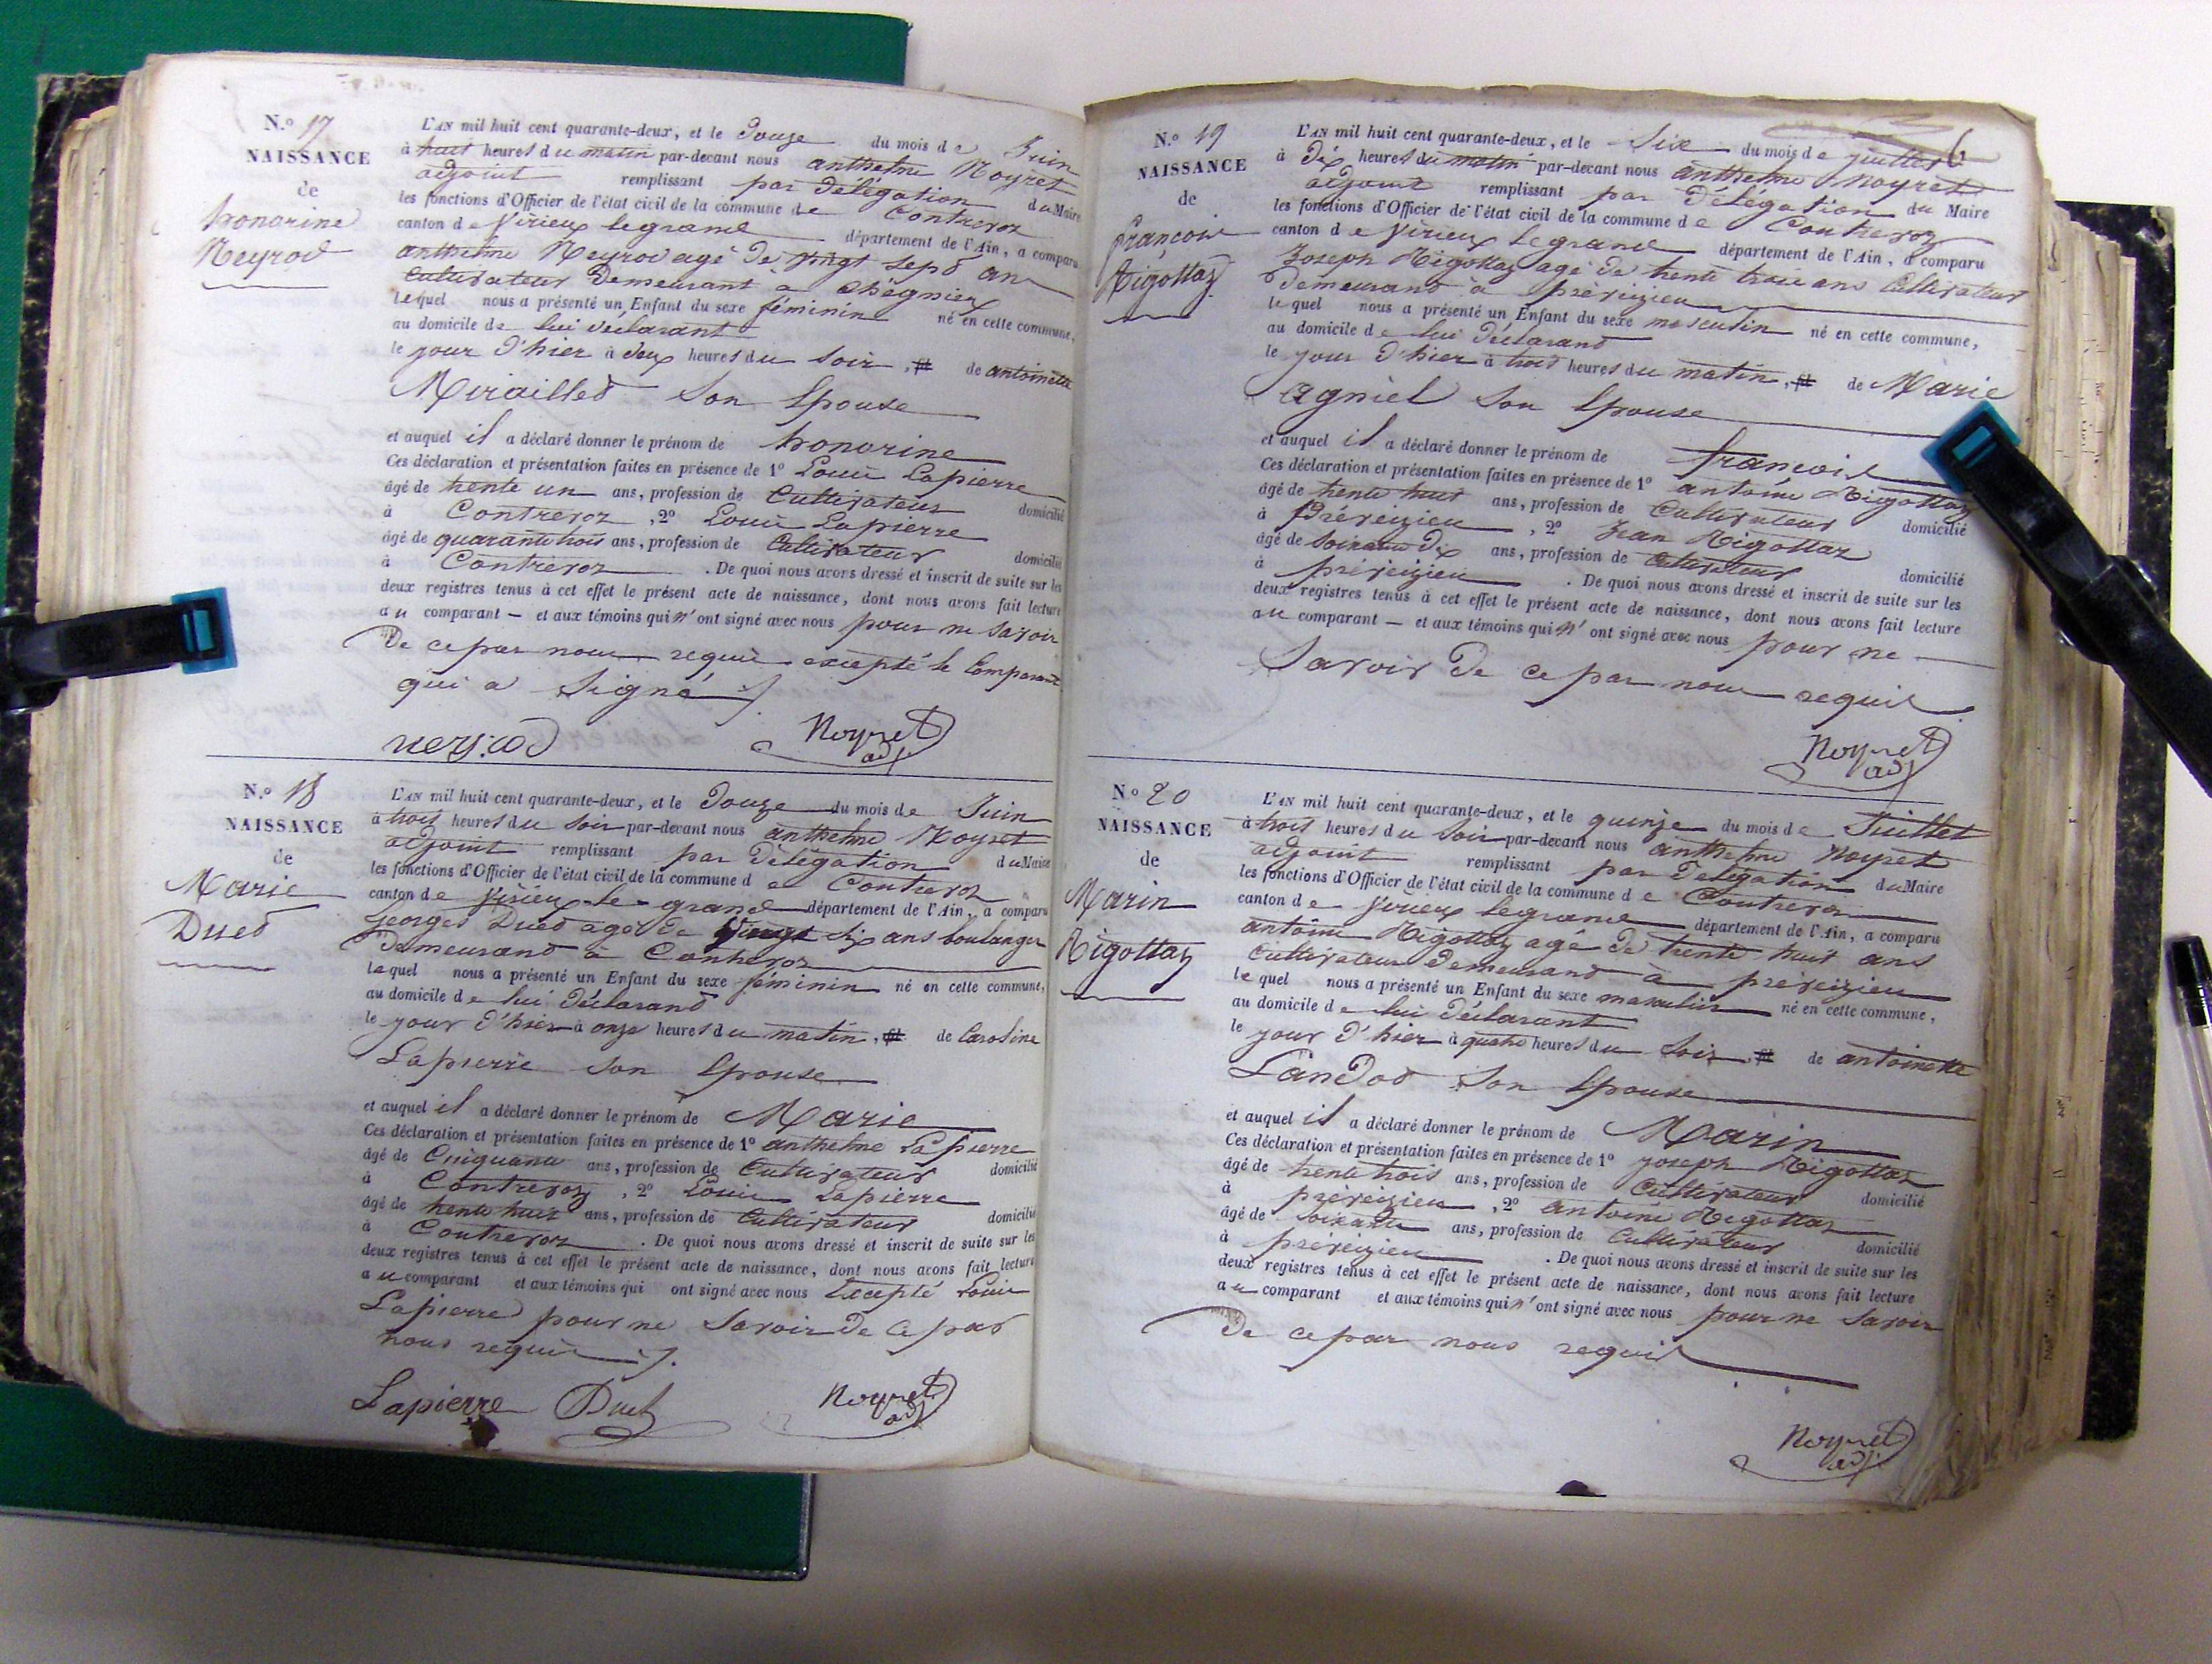 N.o 17
NAISSANCE
de
honorine
Neyrod
L'AN mil huit cent quarante-deux, et le Douze du mois de Juin
à huit heures du matin par-devant nous anthelme Noyret
adjoint remplissant par Délégation du Maire
les fonctions d'Officier de l'état civil de la commune de Contrevoz
canton de Virieux legrand département de l'Ain, a comparu
anthelme Neyrod agé De vingt sept an
Cultivateur Demeurant à Chégnieu
lequel nous a présenté un Enfant du sexe féminin né en cette commune,
au domicile de lui déclarant
le jour d'hier à Deux heures du Soir, de antoinette
Miraillet Son Epouse
et auquel il a déclaré donner le prénom de honorine
Ces déclaration et présentation faites en présence de 1o Louis Lapierre
âgé de trente un ans, profession de Cultivateur domicilié
à Contrevoz, 2o Louis Lapierre
âgé de quarante trois ans, profession de Cultivateur domicilié
à Contrevoz. De quoi nous avons dressé et inscrit de suite sur les
deux registres tenus à cet effet le présent acte de naissance, dont nous avons fait lecture
au comparant — et aux témoins qui n'ont signé avec nous pour ne Savoir
De ce par nous requis excepté le Comparant
qui a Signé
neyrod Noyret adj
N.o 18
NAISSANCE
de
Marie
Dued
L'AN mil huit cent quarante-deux, et le Douze du mois de Juin
à trois heures du Soir par-devant nous anthelme Noyret
adjoint remplissant par Délégation du Maire
les fonctions d'Officier de l'état civil de la commune de Contrevoz
canton de Virieux-le-grand département de l'Ain, a comparu
georges Dued agé De Vingt dix ans boulanger
Demeurand à Contrevoz
lequel nous a présenté un Enfant du sexe féminin né en cette commune,
au domicile de lui Déclarand
le jour d'hier à onze heures du matin, de Caroline
Lapierre Son Epouse
et auquel il a déclaré donner le prénom de Marie
Ces déclaration et présentation faites en présence de 1o anthelme Lapierre
âgé de Cinquante ans, profession de Cultivateur domicilié
à Contrevoz, 2o Louis Lapierre
âgé de trente huit ans, profession de Cultivateur domicilié
à Contrevoz. De quoi nous avons dressé et inscrit de suite sur les
deux registres tenus à cet effet le présent acte de naissance, dont nous avons fait lecture
au comparant et aux témoins qui ont signé avec nous Excepté Louis
Lapierre pour ne Savoir De Ce par
nous requis
Lapierre Duet Noyret adj
6
N.o 19
NAISSANCE
de
françois
Rigottaz
L'AN mil huit cent quarante-deux, et le Six du mois de juillet
à Dix heures du matin par-devant nous anthelme Noyret
adjoint remplissant par Délégation du Maire
les fonctions d'Officier de l'état civil de la commune de Contrevoz
canton de Virieux legrand département de l'Ain, a comparu
Joseph Rigottaz agé de trente trois ans Cultivateur
Demeurand à préveizieu
lequel nous a présenté un Enfant du sexe masculin né en cette commune,
au domicile de lui Déclarand
le jour d'hier à trois heures du matin, de Marie
agniel Son Epouse
et auquel il a déclaré donner le prénom de françois
Ces déclaration et présentation faites en présence de 1o antoine Rigottaz
âgé de trente huit ans, profession de Cultivateur domicilié
à Préveizieu, 2o Jean Rigottaz
âgé de Soixante Dix ans, profession de Cultivateur domicilié
à préveizieu. De quoi nous avons dressé et inscrit de suite sur les
deux registres tenus à cet effet le présent acte de naissance, dont nous avons fait lecture
au comparant — et aux témoins qui n'ont signé avec nous pour ne
Savoir De ce par nous requis
Noyret adj
No 20
NAISSANCE
de
Marin
Rigottaz
L'AN mil huit cent quarante-deux, et le quinze du mois de Juillet
à trois heures du Soir par-devant nous anthelme Noyret
adjoint remplissant par Délégation du Maire
les fonctions d'Officier de l'état civil de la commune de Contrevoz
canton de Virieux legrand département de l'Ain, a comparu
antoine Rigottaz agé De trente huit ans
Cultivateur Demeurand à préveizieu
lequel nous a présenté un Enfant du sexe masculin né en cette commune,
au domicile de lui Déclarant
le jour d'hier à quatre heures du Soir de antoinette
LanDod Son Epouse
et auquel il a déclaré donner le prénom de Marin
Ces déclaration et présentation faites en présence de 1o joseph Rigottaz
âgé de trente trois ans, profession de Cultivateur domicilié
à préveizieu, 2o antoine Rigottaz
âgé de Soixante ans, profession de Cultivateur domicilié
à préveizieu. De quoi nous avons dressé et inscrit de suite sur les
deux registres tenus à cet effet le présent acte de naissance, dont nous avons fait lecture
au comparant et aux témoins qui n'ont signé avec nous pour ne Savoir
De ce par nous requis
Noyret adj